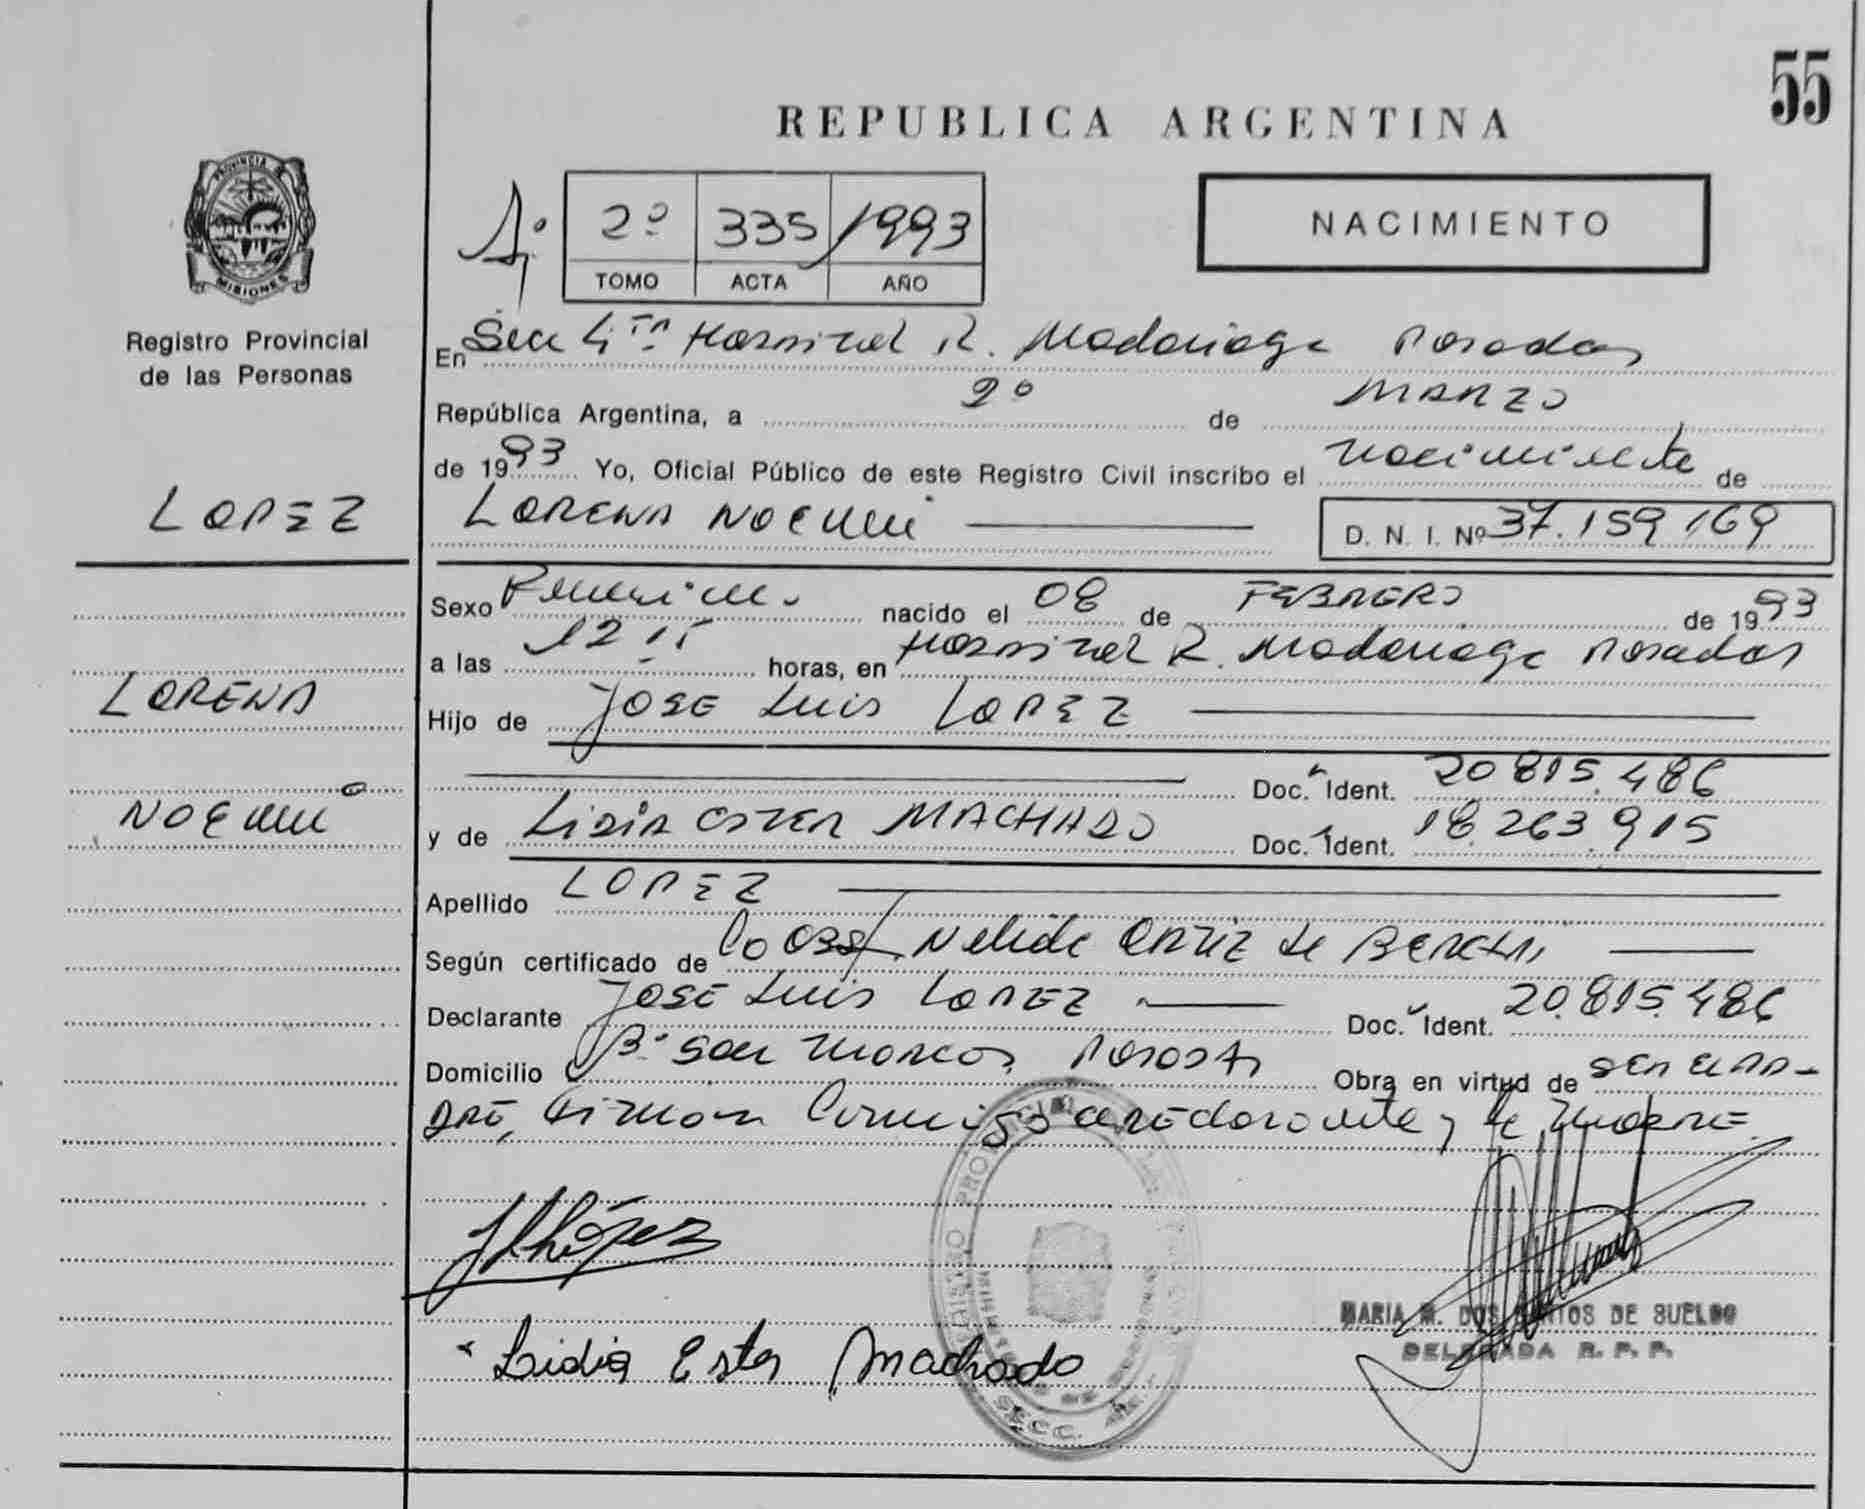 55
REPUBLICA ARGENTINA
PROVINCIA DE MISIONES
2º 335 1993
TOMO ACTA AÑO
NACIMIENTO
Registro Provincial
de las Personas
En Secc 4ta Hospital R. Madariaga Posadas
República Argentina, a 9º de MARZO
de 1993 Yo, Oficial Público de este Registro Civil inscribo el nacimiento de
LOPEZ
LORENA NOEMI D. N. I. Nº 37.159.169
Sexo Femenino nacido el 08 de FEBRERO de 1993
a las 12 15 horas, en Hospital R. Madariaga Posadas
LORENA
Hijo de JOSE Luis LOPEZ
Doc. Ident. 20.815.486
NOEMI
y de LIDIA ESTER MACHADO Doc. Ident. 18.263.915
Apellido LOPEZ
Según certificado de Obst Nelida ORTIZ de
Declarante JOSE Luis LOPEZ Doc. Ident. 20.815.486
Domicilio Bº San Marcos Posadas Obra en virtud de SER EL PA-
DRE, Firman Conmigo el Declarante y la MADRE
JLLópez
MARIA M. DOS SANTOS DE SUELDO
DELEGADA R. P. P.
Lidia Ester Machado
SECC.